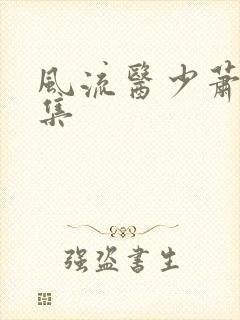 風流醫少蕭
集
强盗書生